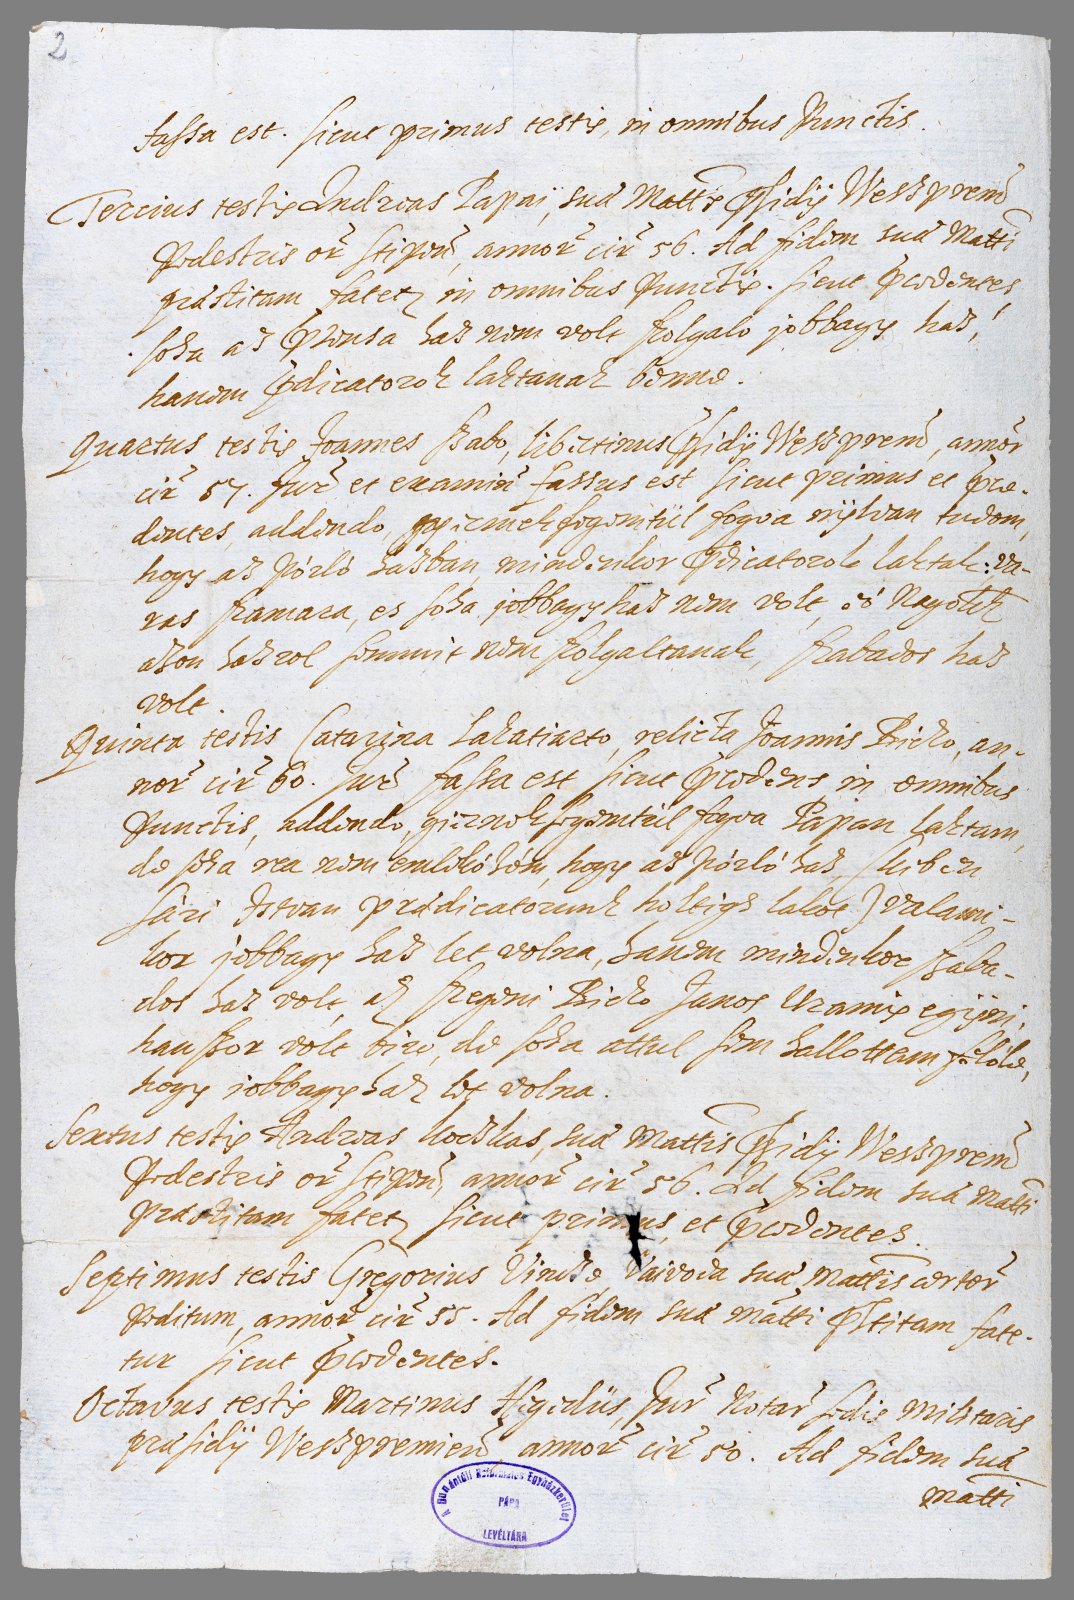 2
fassa est. sicut primus testis, in omnibus Punctis.
Tercius testis Andreas Papai, suæ Mattis Psidÿ Weszprem̃
Pedestris or̃ Stipen̄, annor̃ cir̃ 56. Ad fidem suæ Matti
præstitam fatetr in omnibus Punctis. sicut Pcedentes,
soha az Pronsa haz nem volt szolgalo jobbagy haz,
hanem Pdicatorok laktanak benne.
Quartus testis Joannes Szabo, libertinus Psidÿ Weszprem̃, annor̃
cir̃ 57. Jur̃ et examin̄ fassus est sicut primus et Pce-
dentes, addendo, gyermeksegemtül fogva nÿlvan tudom,
hogy az Pórló házban, mindenkor Pdicatorok laktak: va-
ras szamara, es soha jobbagyhaz nem volt, eö Nagok
azon hazrol semmit nem szolgaltanak, szabados haz
volt.
Quinta testis Catarina Lakatiarto, relicta Joannis Bicko, an-
nor̃ cir̃ 60. Jur̃ fassa est sicut Pcedens in omnibus
Punctis, addendo, giermeksegemtül fogva Papan laktam,
de soha rea nem emlékézem, hogy az Pórló haz, (kiben
Sári Istvan prædicatorunk holtigh lakot) valami-
kor jobbagy haz let volna, hanem mindenkor szaba-
dos haz volt, az szegeni Bicko Janos Uramis egijni-
hanszor volt biro, de soha attul sem hallottam feölöle,
hogy jobbagy haz let volna.
Sextus testis Andreas Kocskas, suæ Mattis Psidÿ Weszprem̃
Pedestris or̃ Stipen̄, annor̃ cir̃ 56. Ad fidem suæ Matti
præstitam fatetr sicut primus, et Pcedentes.
Septimus testis Gregorius Vincze Vaivoda suæ Mattis certor̃
Peditum, annor̃ cir̃ 55. Ad fidem suæ Matti Pstitam fate-
tur sicut Pcedentes.
Octavus testis Martinus Aegidiis, Jur̃ Notar̃ sedis militaris
præsidÿ Weszpremien̄, annor̃ cir̃ 50. Ad fidem suæ
Matti
A Dunántúli Református Egyházkerület
PÁPA
LEVÉLTÁRA